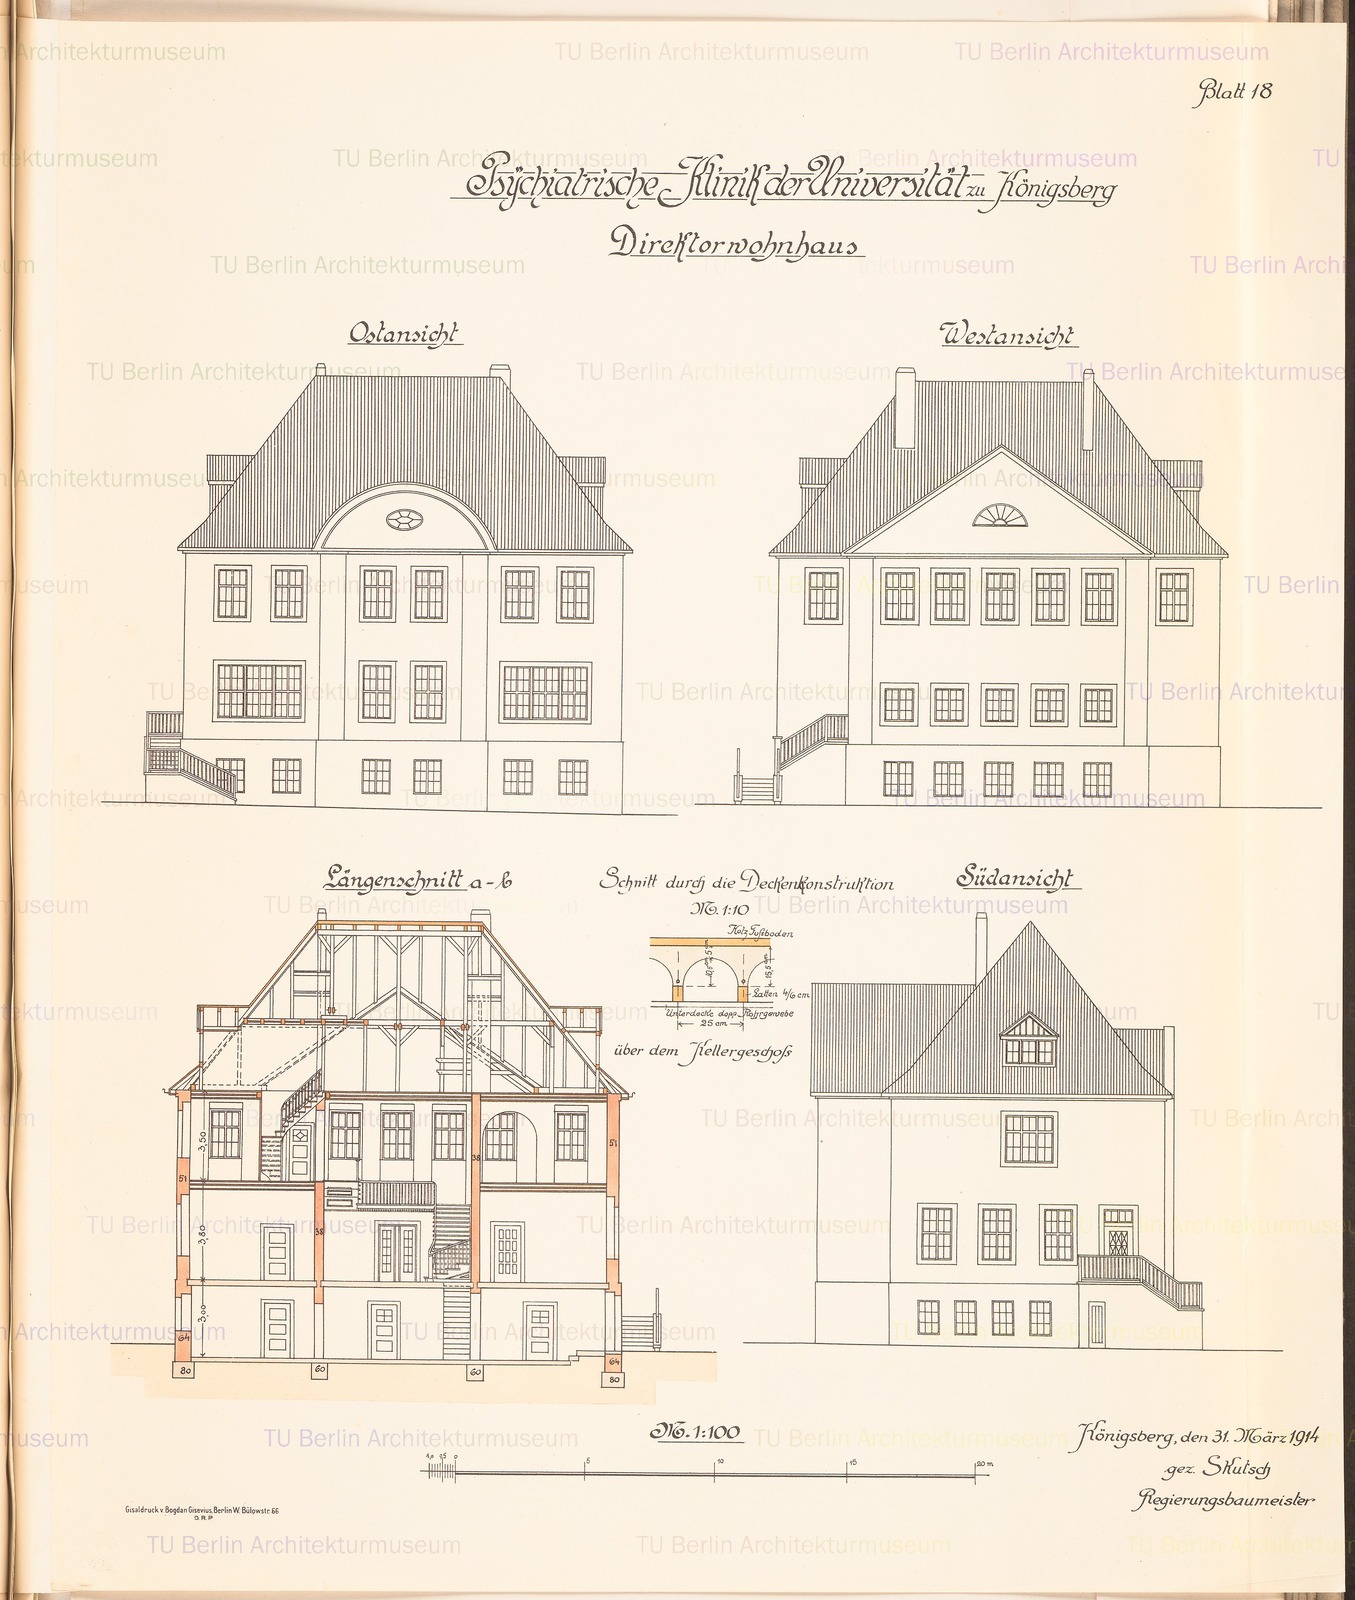 Blatt 18
Psÿchiatrische Klinik der Universität zu Königsberg
Direktorwohnhaus
Ostansicht
Westansicht
Längenschnitt a-b
Schnitt durch die Deckenkonstruktion
M. 1:10
Holz Fußboden
Latten 4/6 cm
Unterdecke dopp. Rohrgewebe
25 cm
über dem Kellergeschoß
Südansicht
3,50
51
38
51
3,80
38
3,00
64
64
80
60
60
80
M. 1:100
1,0 0,5 0 5 10 15 20 m
Königsberg, den 31. März 1914
gez. Skutsch
Regierungsbaumeister
Gisaldruck v. Bogdan Gisevius, Berlin W. Bülowstr. 66
D.R.P
TU Berlin Architekturmuseum